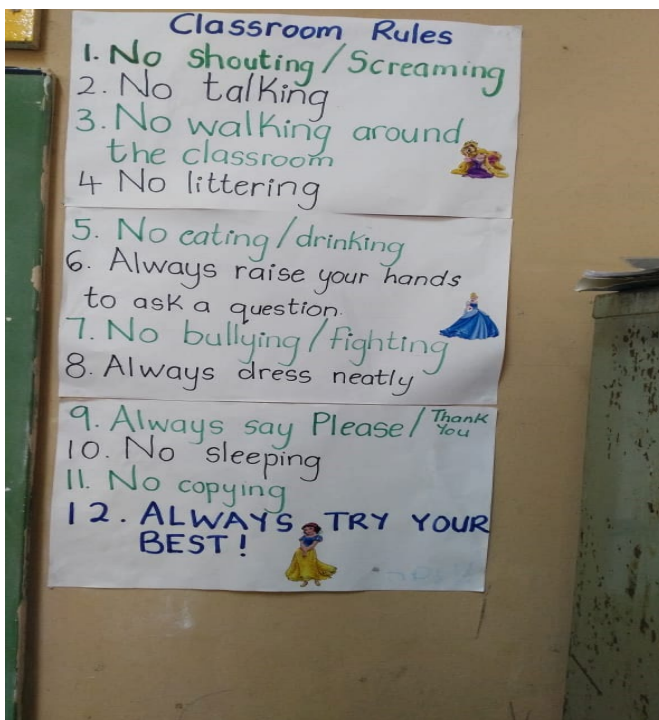 Classroom Rules
1. No Shouting/Screaming
2. No talking
3. No walking around
the classroom
4 No littering
5. No eating/drinking
6. Always raise your hands
to ask a question.
7. No bullying/fighting
8. Always dress neatly
9. Always say Please/Thank You
10. No sleeping
11. No copying
12. ALWAYS TRY YOUR
BEST!